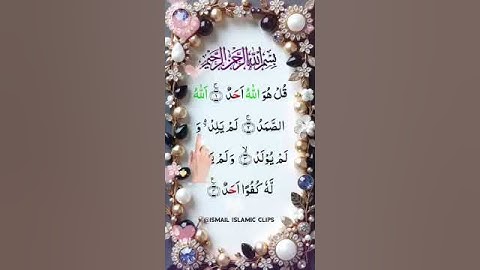 بِسْمِ اللهِ الرَّحْمٰنِ الرَّحِيْمِ
قُلْ هُوَ اللّٰهُ اَحَدٌ ۚ﴿۱﴾ اَللّٰهُ
الصَّمَدُ ۚ﴿۲﴾ لَمْ يَلِدْ ۙ۬ وَ
لَمْ يُوْلَدْ ۙ﴿۳﴾ وَ لَمْ
لَّهٗ كُفُوًا اَحَدٌ ﴿۴﴾
@ISMAIL ISLAMIC CLIPS